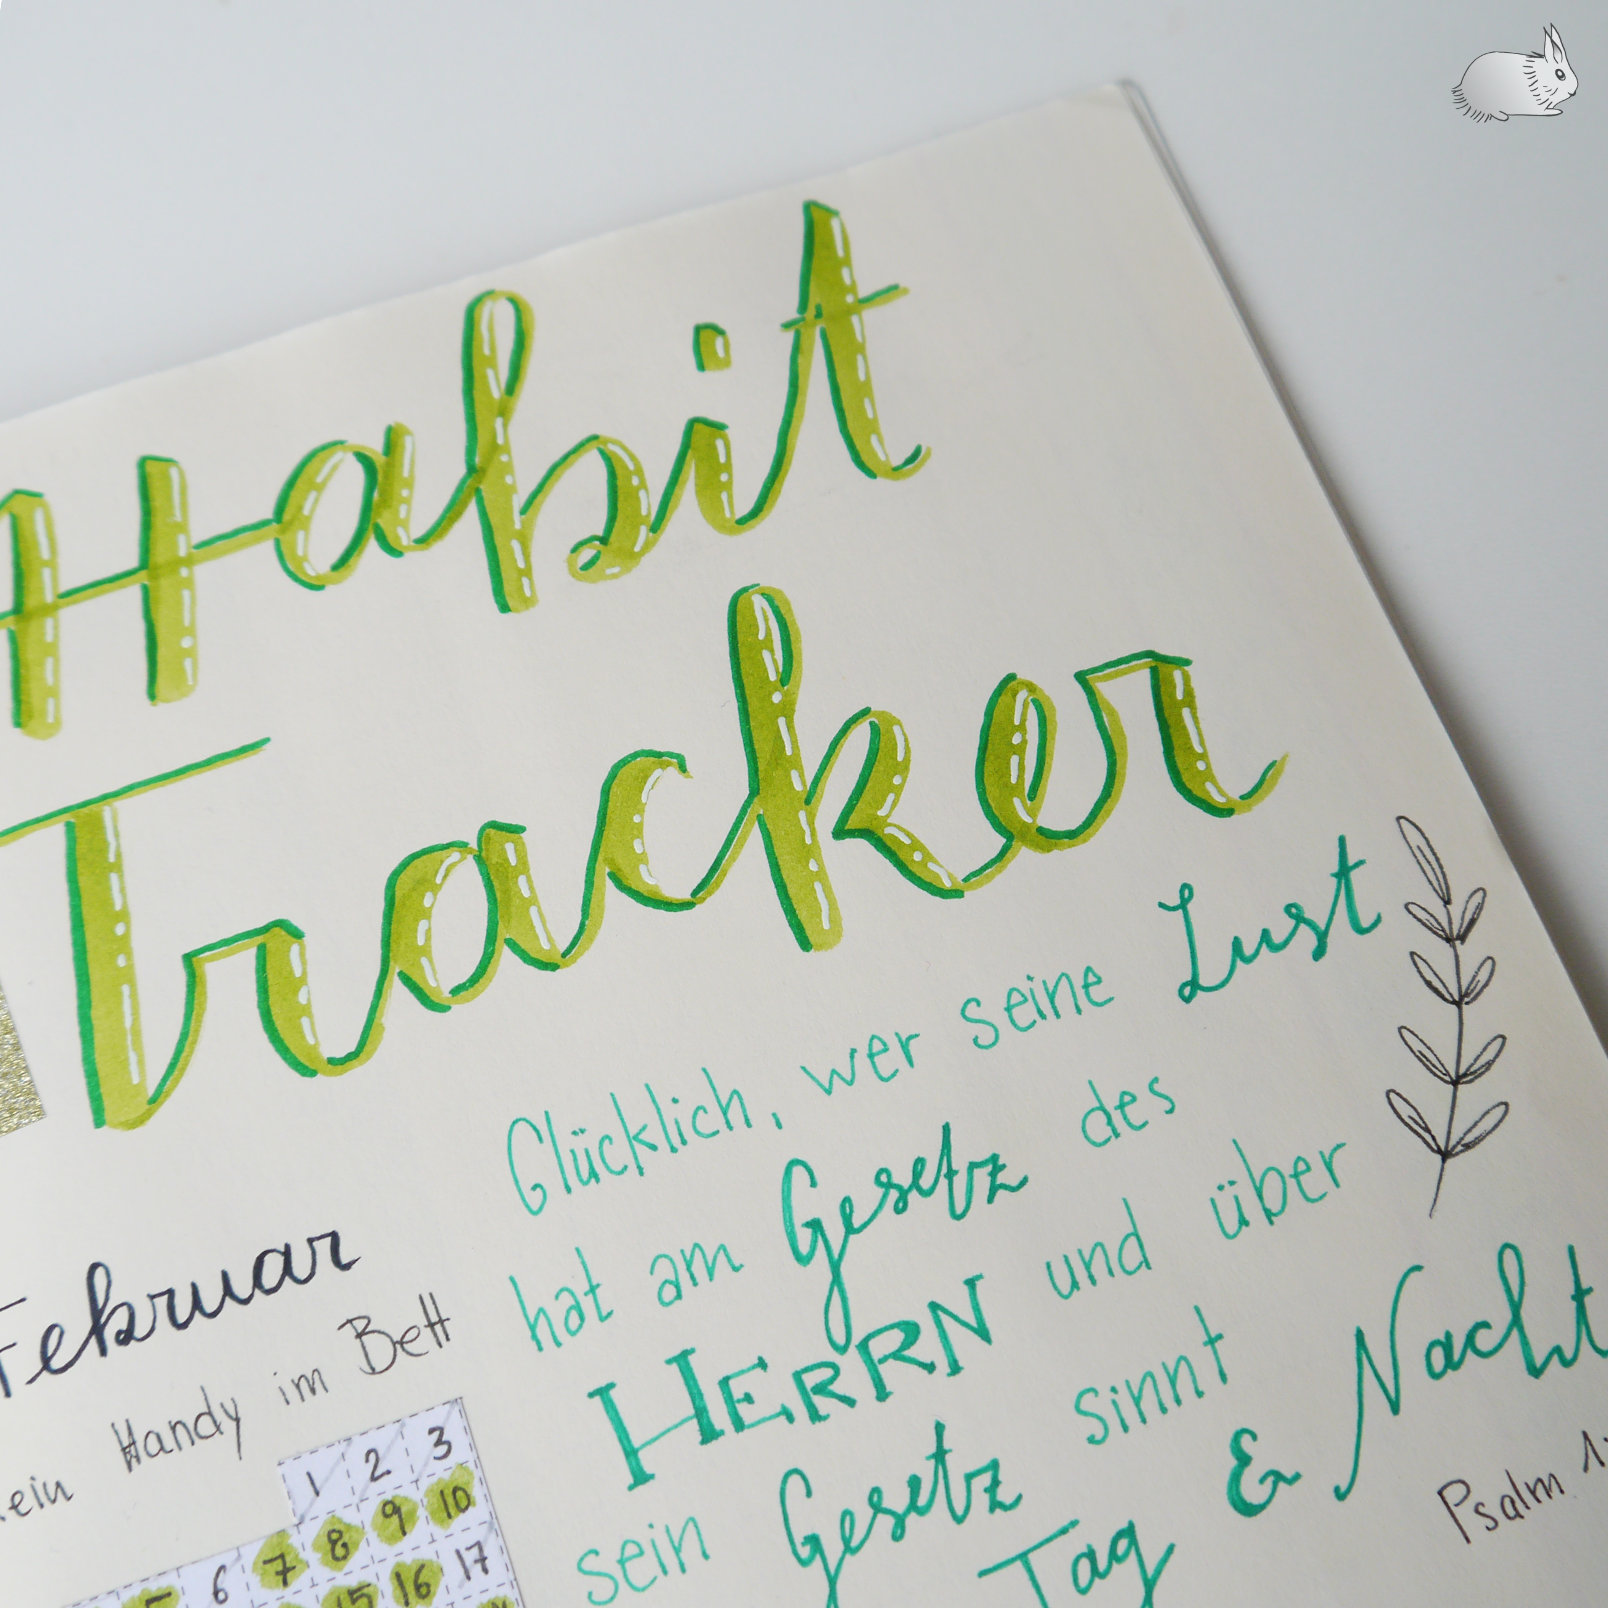 Habit
Tracker
Glücklich, wer seine Lust
hat am Gesetz des
HERRN und über
sein Gesetz sinnt
Tag & Nacht
Psalm
Februar
Handy im Bett
1 2 3
6 7 8 9 10
15 16 17